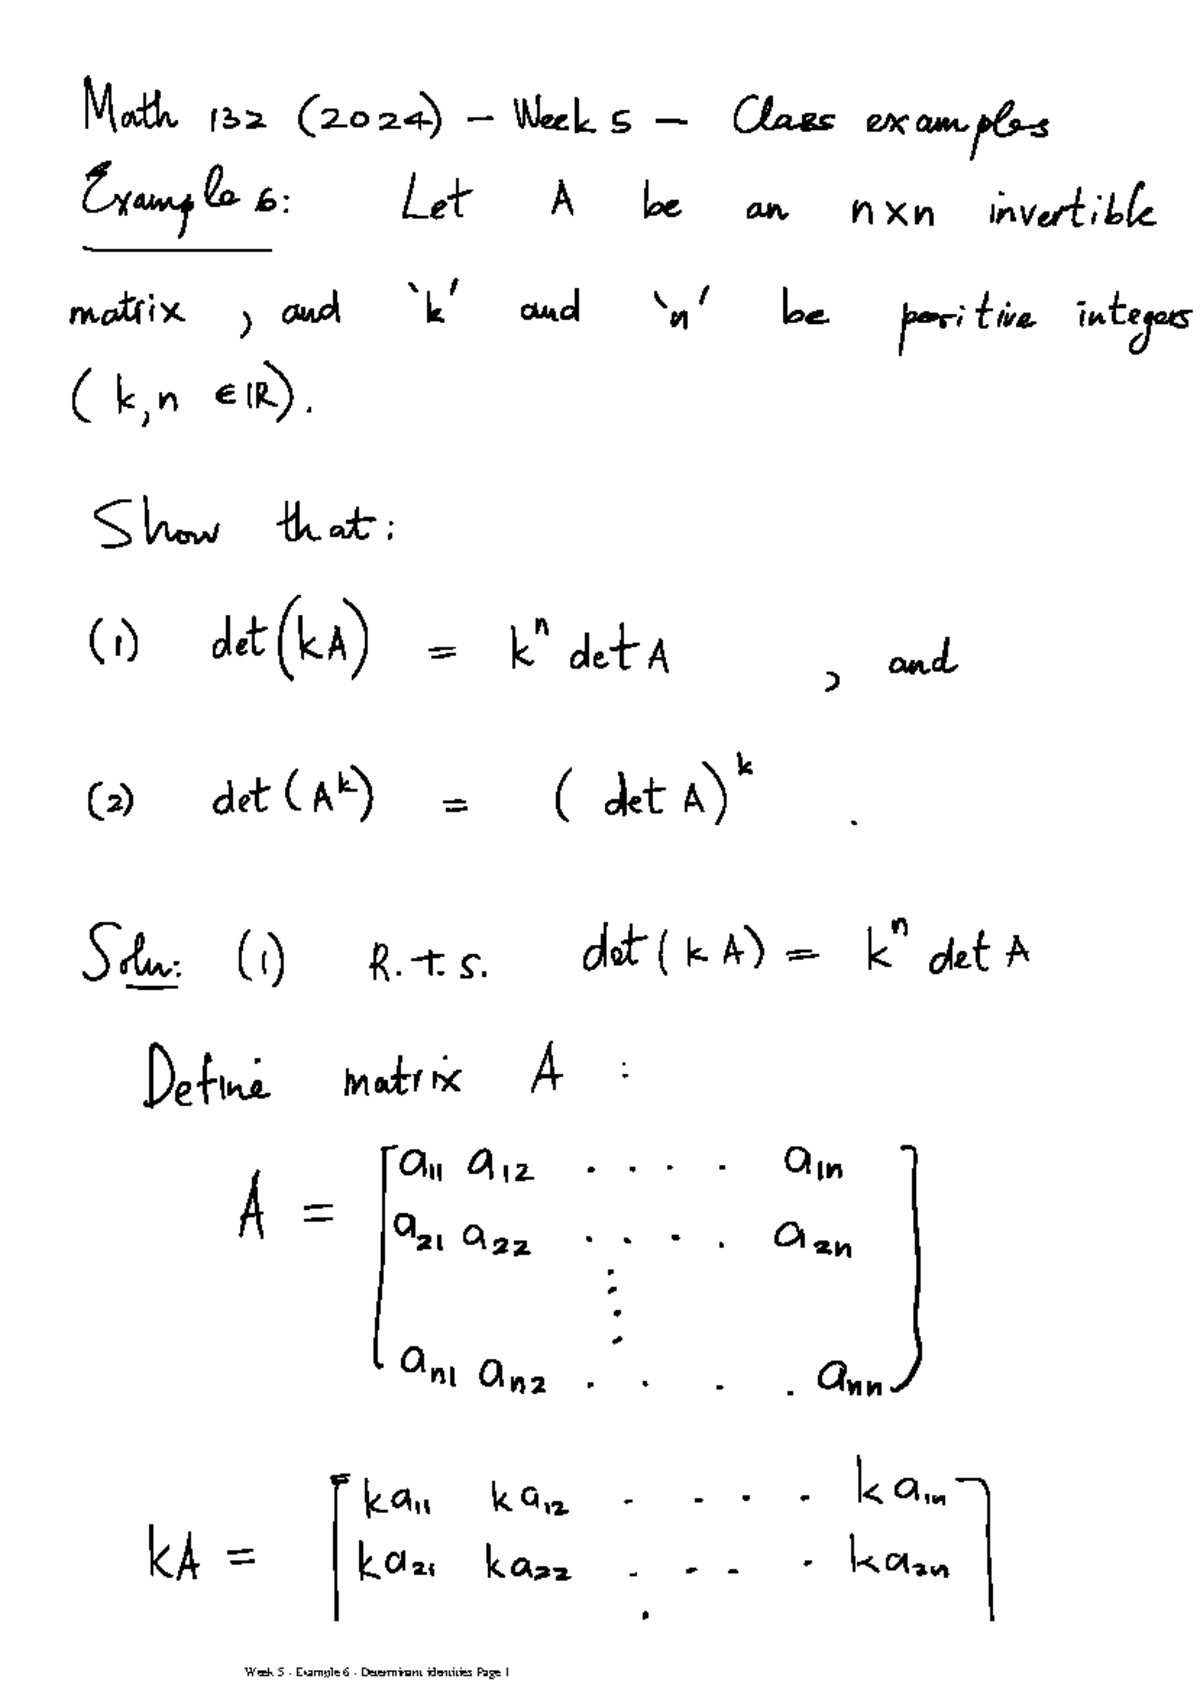 Math 132 (2024) – Week 5 – Class examples
Example 6: Let A be an n×n invertible
matrix, and ‘k’ and ‘n’ be positive integers
(k,n ∈ ℝ).
Show that:
(1) det(kA) = kⁿ det A , and
(2) det(Aᵏ) = (det A)ᵏ .
Soln: (1) R.t.s. det(kA) = kⁿ det A
Define matrix A :
A = [ a₁₁ a₁₂ . . . . a₁ₙ
a₂₁ a₂₂ . . . . a₂ₙ
⋮
aₙ₁ aₙ₂ . . . . aₙₙ ]
kA = [ ka₁₁ ka₁₂ . . . . ka₁ₙ
ka₂₁ ka₂₂ . . . . ka₂ₙ ]
Week 5 - Example 6 - Determinant identities Page 1